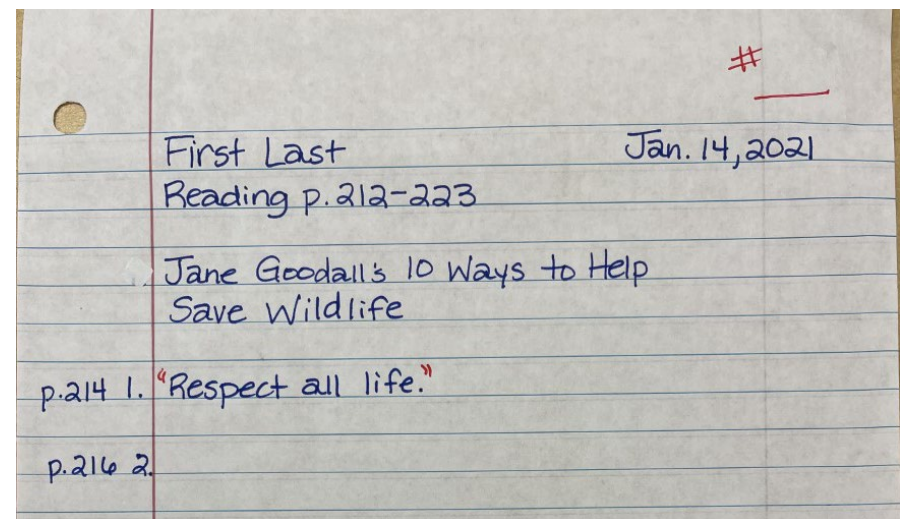 #
First Last Jan. 14, 2021
Reading p. 212-223
Jane Goodall's 10 Ways to Help
Save Wildlife
p. 214 1. "Respect all life."
p. 216 2.